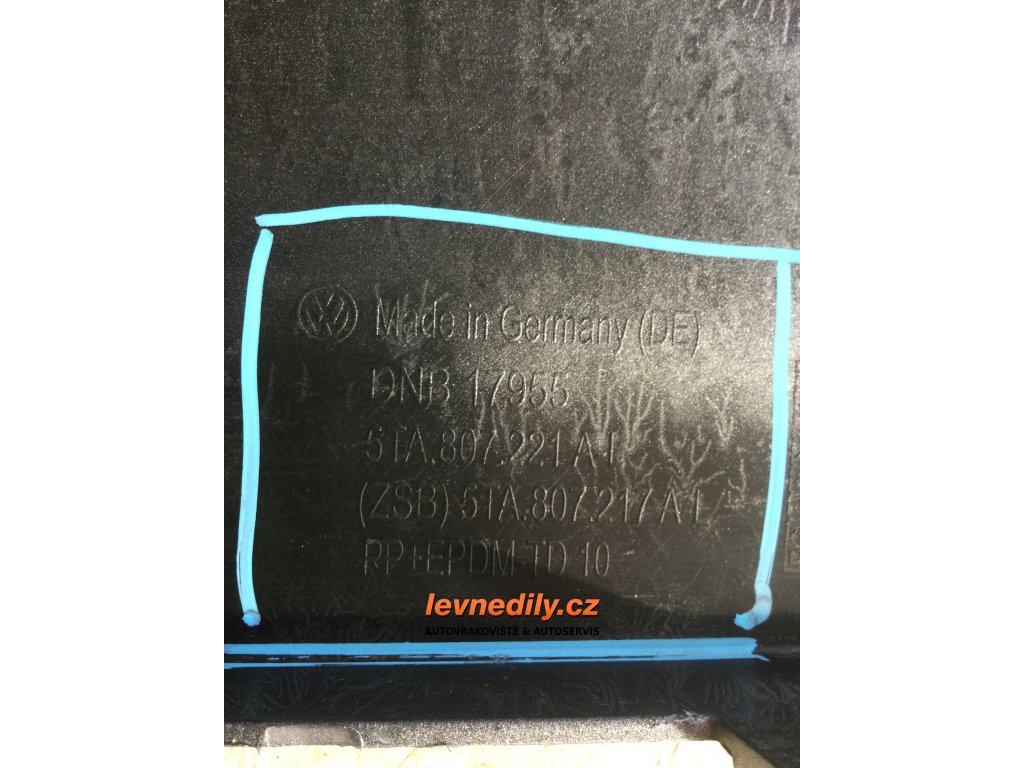 Made in Germany (DE)
DNB 17955
5TA.807.221 A-I
(ZSB) 5TA.807.217 A-L
PP+EPDM-TD 10
levnedily.cz
AUTOVRAKOVIŠTĚ & AUTOSERVIS